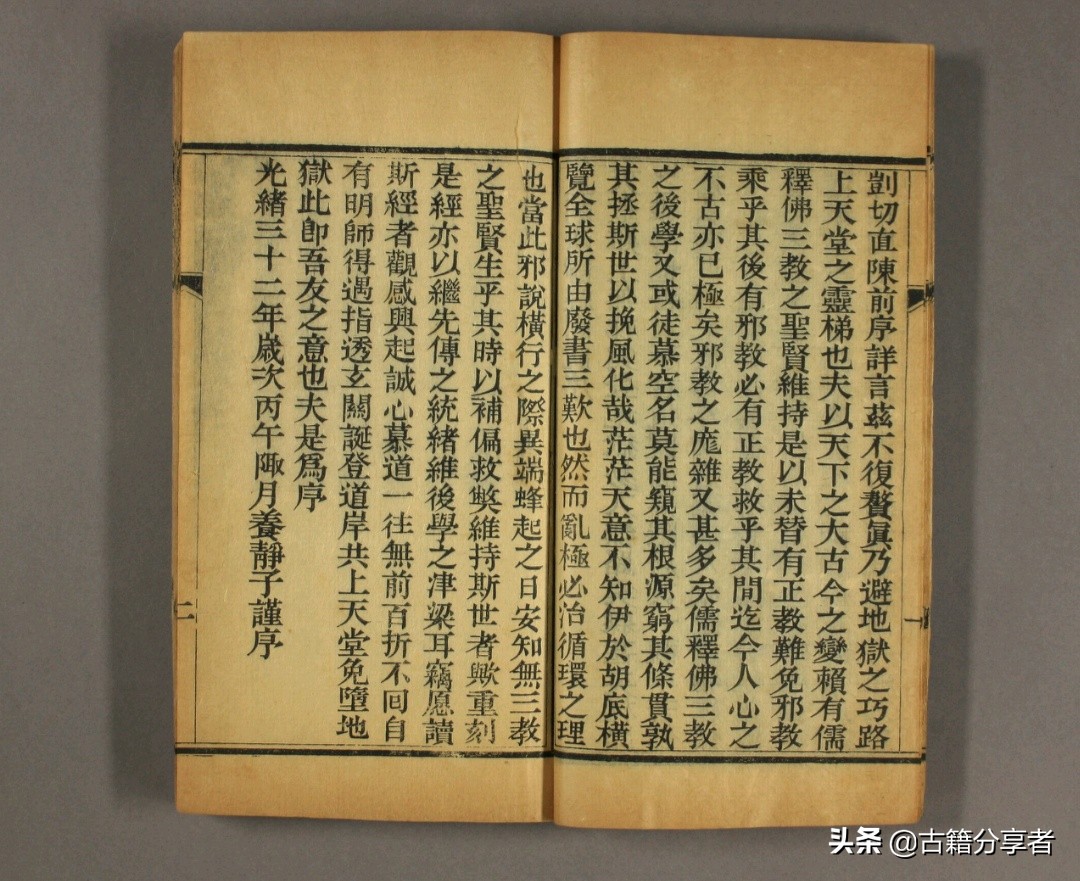 剴切直陳前序詳言茲不復贅眞乃避地獄之巧路
上天堂之靈梯也夫以天下之大古今之變賴有儒
釋佛三教之聖賢維持是以未替有正教難免邪教
乘乎其後有邪教必有正教救乎其間迄今人心之
不古亦已極矣邪教之庬雜又甚多矣儒釋佛三教
之後學又或徒慕空名莫能窺其根源窮其條貫孰
其拯斯世以挽風化哉茫茫天意不知伊於胡底橫
覽全球所由廢書三歎也然而亂極必治循環之理
也當此邪說橫行之際異端蜂起之日安知無三教
之聖賢生乎其時以補偏救獘維持斯世者歟重刻
是經亦以繼先傳之統緒維後學之津梁耳竊愿讀
斯經者觀感興起誠心慕道一往無前百折不囘自
有明師得遇指透玄關誕登道岸共上天堂免墮地
獄此卽吾友之意也夫是爲序
光緒三十二年歲次丙午陬月養靜子謹序
一
二
头条 @古籍分享者